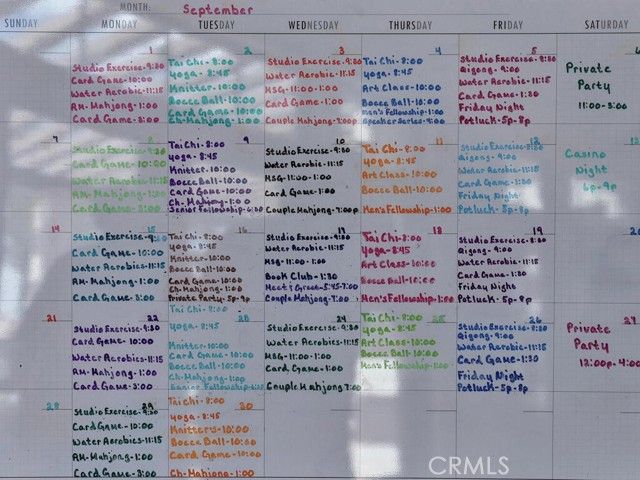 MONTH: September
SUNDAY MONDAY TUESDAY WEDNESDAY THURSDAY FRIDAY SATURDAY
1
Studio Exercise-9:30
Card Game-10:00
Water Aerobic-11:15
AM-Mahjong-1:00
Card Game-3:00
2
Tai Chi-8:00
Yoga-8:45
Knitter-10:00
Bocce Ball-10:00
Card Game-10:00
Ch-Mahjong-1:00
3
Studio Exercise-9:30
Water Aerobic-11:15
MSG-11:00-1:00
Card Game-1:00
Couple Mahjong-7:00p
4
Tai Chi-8:00
Yoga-8:45
Art Class-10:00
Bocce Ball-10:00
Men's Fellowship-1:00
Speaker Series-4:00
5
Studio Exercise-8:30
Qigong-9:00
Water Aerobic-11:15
Card Game-1:30
Friday Night
Potluck-5p-8p
6
Private
Party
11:00-3:00
7
8
Studio Exercise-9:30
Card Game-10:00
Water Aerobic-11:15
AM Mahjong-1:00
Card Game-3:00
9
Tai Chi-8:00
Yoga-8:45
Knitter-10:00
Bocce Ball-10:00
Card Game-10:00
Ch-Mahjong-1:00
Senior Fellowship-6:30
10
Studio Exercise-9:30
Water Aerobic-11:15
MSG-11:00-1:00
Card Game-1:00
Couple Mahjong-7:00p
11
Tai Chi-8:00
Yoga-8:45
Art Class-10:00
Bocce Ball-10:00
Men's Fellowship-1:00
12
Studio Exercise-8:30
Qigong-9:00
Water Aerobic-11:15
Card Game-1:30
Friday Night
Potluck-5p-8p
13
Casino
Night
6p-9p
14
15
Studio Exercise-9:30
Card Game-10:00
Water Aerobic-11:15
AM-Mahjong-1:00
Card Game-3:00
16
Tai Chi-8:00
Yoga-8:45
Knitter-10:00
Bocce Ball-10:00
Card Game-10:00
Ch-Mahjong-1:00
Private Party-5p-9p
Studio Exercise-9:30
Water Aerobic-11:15
MSG-11:00-1:00
Book Club-1:30
Meet & Greet-5:45-7:00
Couple Mahjong-7:00
18
Tai Chi-8:00
Yoga-8:45
Art Class-10:00
Bocce Ball-10:00
Men's Fellowship-1:00
19
Studio Exercise-8:30
Qigong-9:00
Water Aerobic-11:15
Card Game-1:30
Friday Night
Potluck-5p-8p
20
21
22
Studio Exercise-9:30
Card Game-10:00
Water Aerobic-11:15
AM-Mahjong-1:00
Card Game-3:00
Tai Chi-8:00
Yoga-8:45
Knitter-10:00
Card Game-10:00
Bocce Ball-10:00
Ch-Mahjong-1:00
Senior Fellowship-6:30
24
Studio Exercise-9:30
Water Aerobic-11:15
MSG-11:00-1:00
Card Game-1:00
Couple Mahjong 7:00
25
Tai Chi-8:00
Yoga-8:45
Art Class-10:00
Bocce Ball-10:00
Men's Fellowship-1:00
26
Studio Exercise-8:30
Qigong-9:00
Water Aerobic-11:15
Card Game-1:30
Friday Night
Potluck-5p-8p
27
Private
Party
12:00p-4:00
28
29
Studio Exercise-9:30
Card Game-10:00
Water Aerobics-11:15
AM-Mahjong-1:00
Card Game-3:00
30
Tai Chi-8:00
Yoga-8:45
Knitters-10:00
Bocce Ball-10:00
Card Game-10:00
Ch-Mahjong-1:00
CRMLS